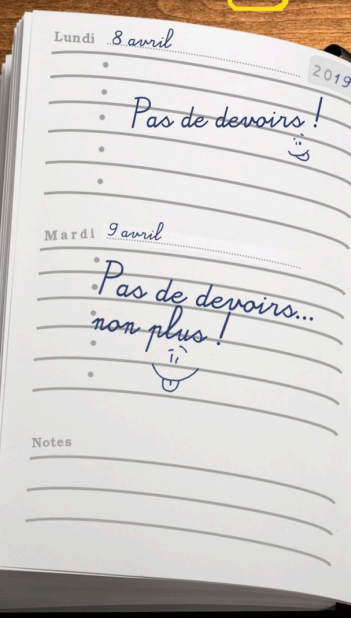 Lundi 8 avril
2019
Pas de devoirs !
Mardi 9 avril
Pas de devoirs...
non plus !
Notes